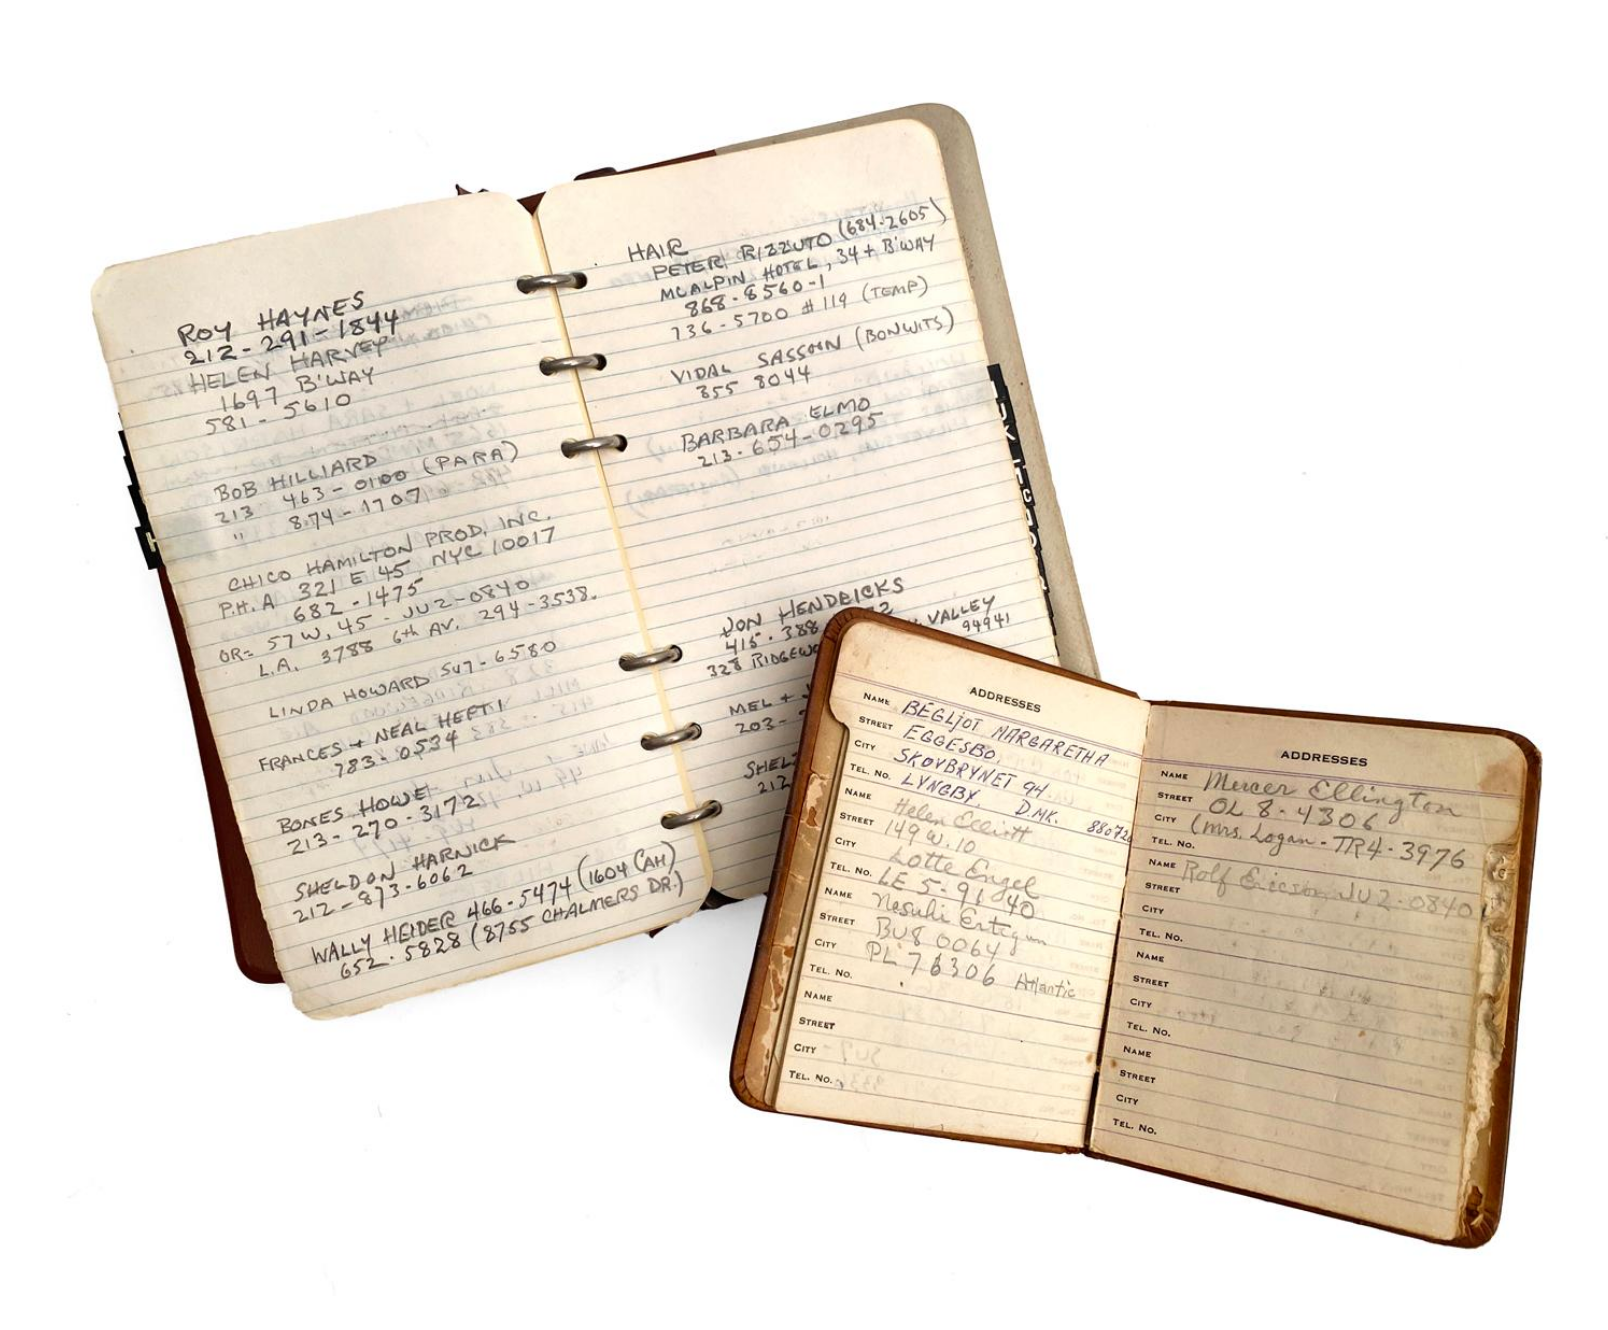 ROY HAYNES
212-291-1844
HELEN HARVEY
1697 B'WAY
581-5610
BOB HILLIARD
213 463-0100 (PARA)
" 874-1707
CHICO HAMILTON PROD, INC.
P.H.A 321 E 45 NYC 10017
682-1475
OR= 57 W, 45 - JU2-0840
L.A. 3788 6th AV. 294-3538.
LINDA HOWARD SU7-6580
FRANCES + NEAL HEFTI
783-0534
BONES HOWE
213-270-3172
SHELDON HARNICK
212-873-6062
WALLY HEIDER 466-5474 (1604 CAH)
652-5828 (8755 CHALMERS DR.)
HAIR
PETER RIZZUTO (684-2605)
MCALPIN HOTEL, 34 + B'WAY
868-8560-1
736-5700 #119 (TEMP)
VIDAL SASSOON (BONWITS)
355 8044
BARBARA ELMO
213-654-0295
JON HENDRICKS
415-388 2
328 VALLEY
94941
MEL +
203-
SHEL
212
ADDRESSES
NAME BEGLJOT MARGARETHA
STREET EGGESBO,
CITY SKOVBRYNET 94.
TEL. NO. LYNGBY. D.MK. 88072
NAME Helen Elliott
STREET 149 W. 10
CITY Lotte Engel
TEL. NO. LE 5-9140
NAME Nesuhi Ertegun
STREET BU8 0064
CITY PL 76306 Atlantic
TEL. NO.
NAME
STREET
CITY
TEL. NO.
ADDRESSES
NAME Mercer Ellington
STREET OL 8-4306
CITY (Mrs. Logan - TR4-3976
TEL. NO.
NAME Rolf Ericson JU2-0840
STREET
CITY
TEL. NO.
NAME
STREET
CITY
TEL. NO.
NAME
STREET
CITY
TEL. NO.